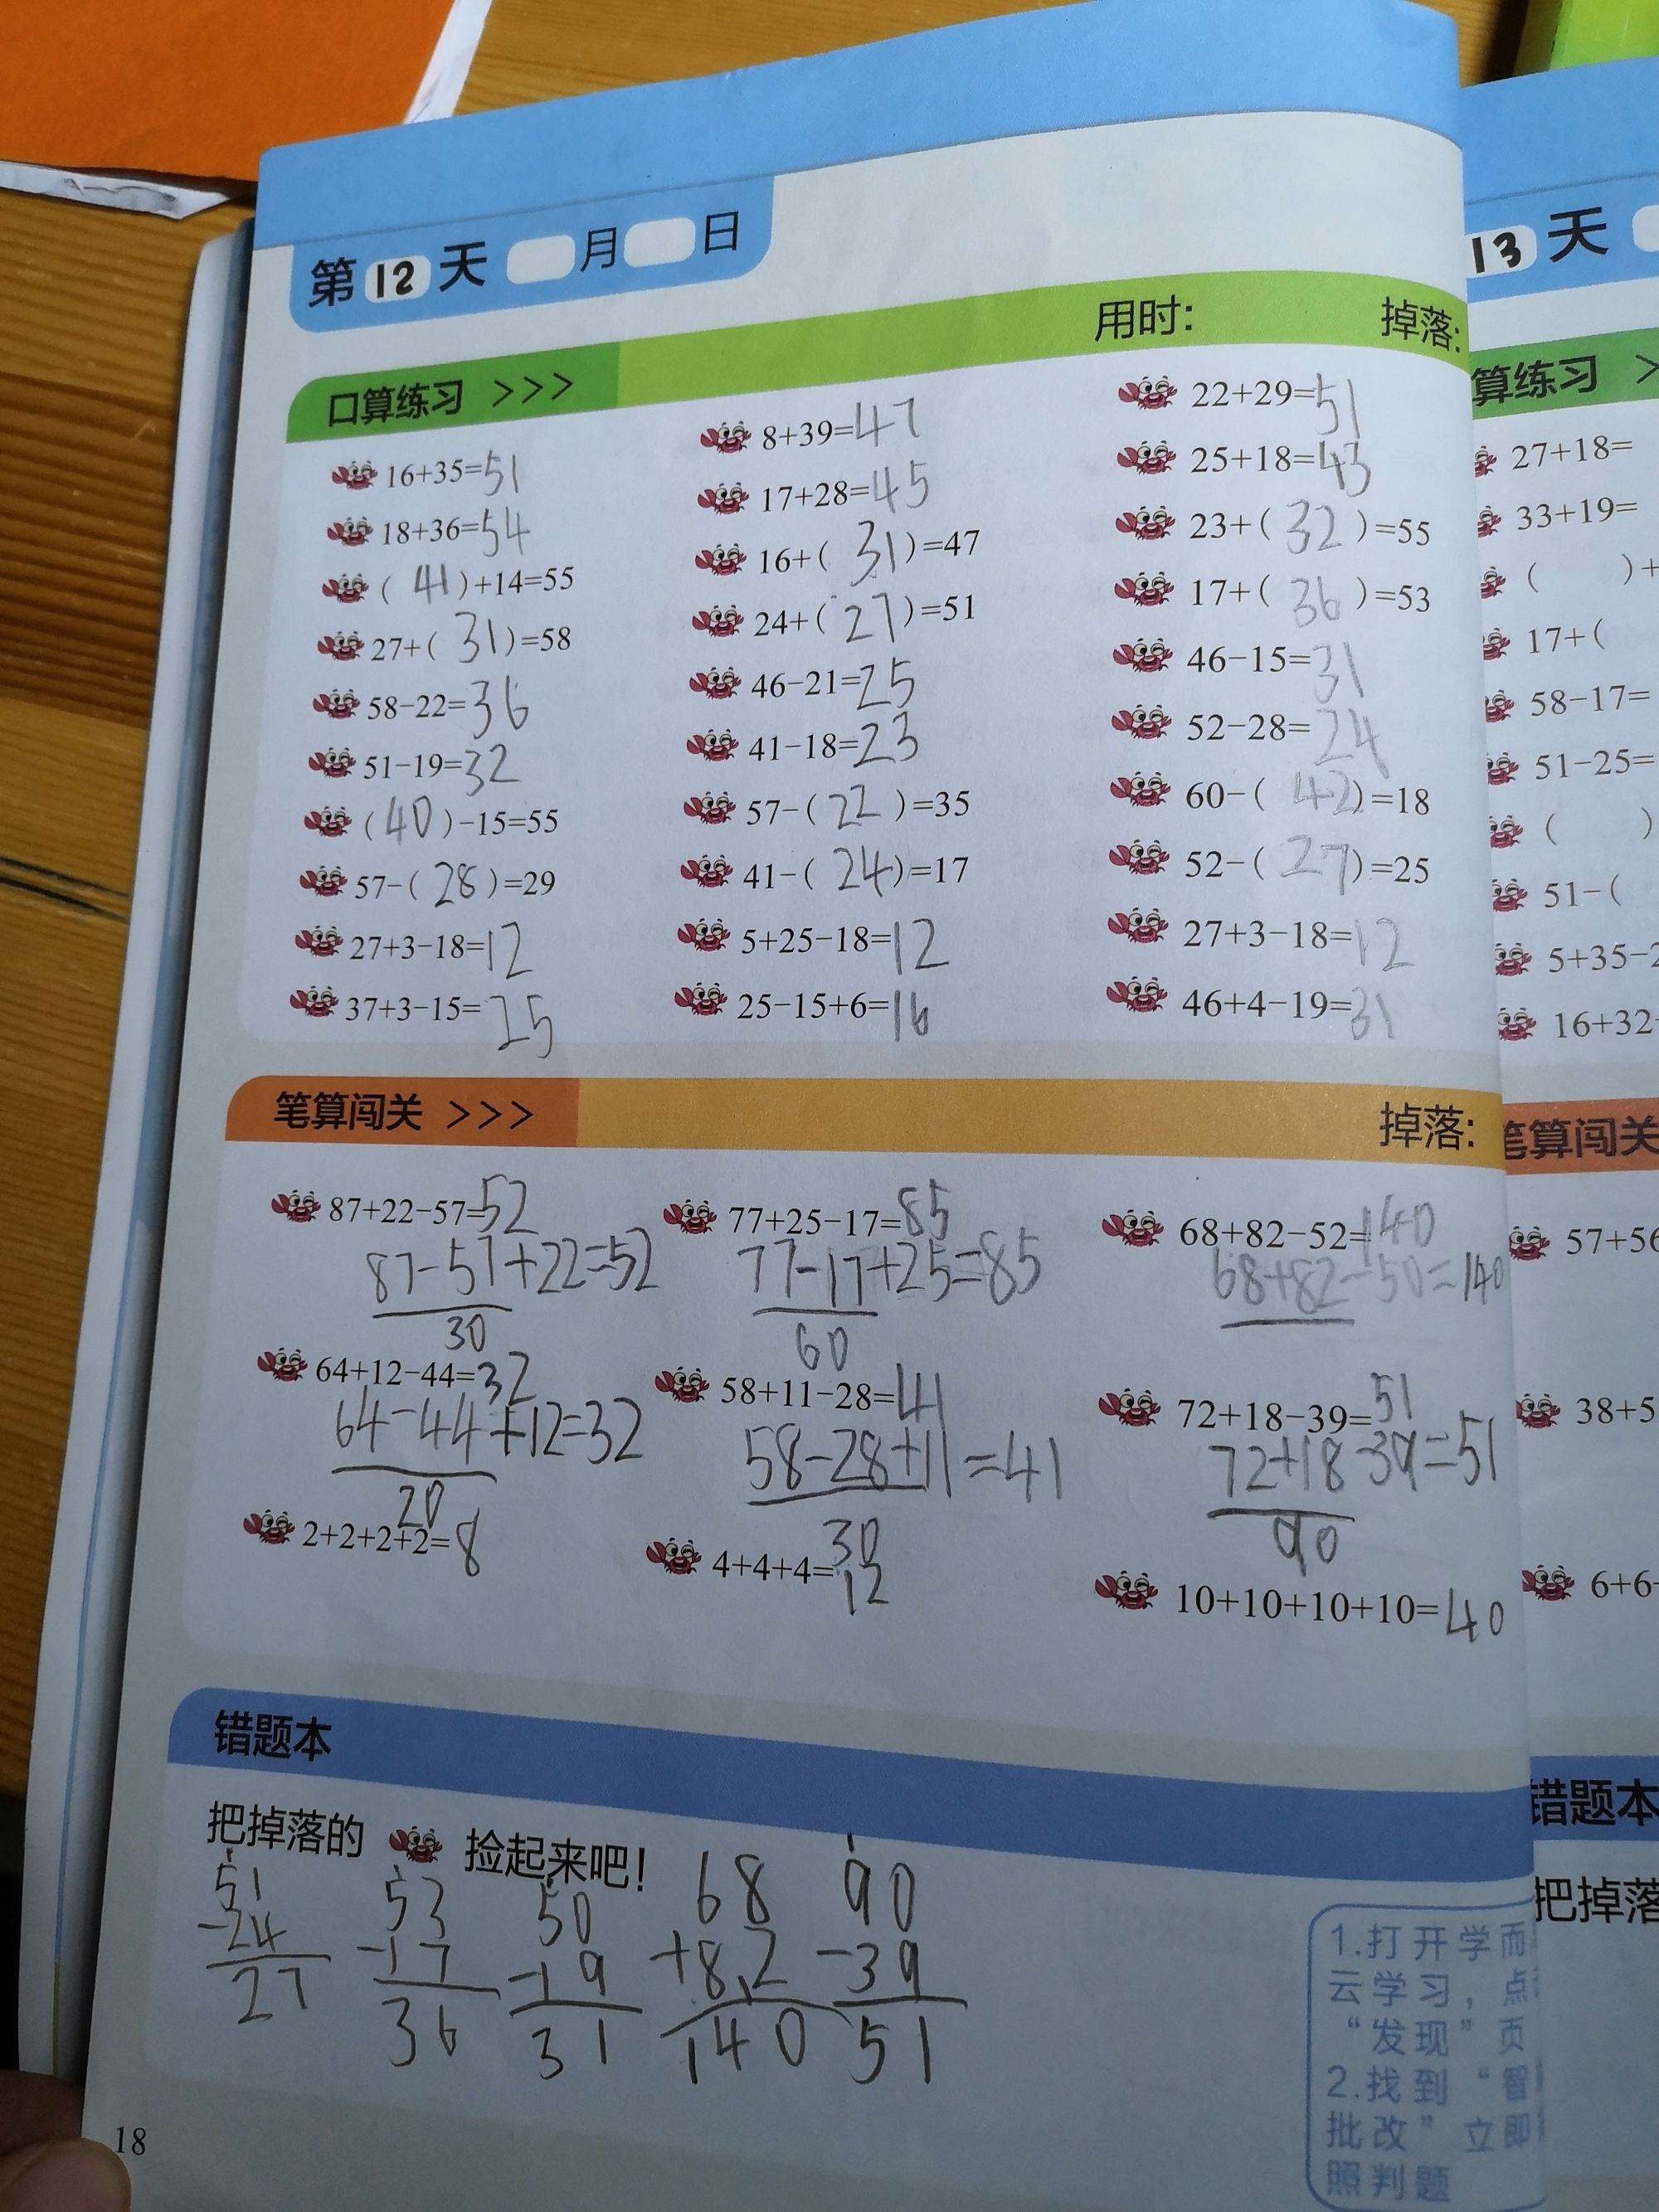 第12天 月 日
用时: 掉落:
口算练习 >>>
16+35=51
18+36=54
(41)+14=55
27+(31)=58
58-22=36
51-19=32
(40)-15=55
57-(28)=29
27+3-18=12
37+3-15=25
8+39=47
17+28=45
16+(31)=47
24+(27)=51
46-21=25
41-18=23
57-(22)=35
41-(24)=17
5+25-18=12
25-15+6=16
22+29=51
25+18=43
23+(32)=55
17+(36)=53
46-15=31
52-28=24
60-(42)=18
52-(27)=25
27+3-18=12
46+4-19=31
笔算闯关 >>>
掉落:
87+22-57=52
87-57+22=52
30
77+25-17=85
77-17+25=85
60
68+82-52=140
68+82-50=140
64+12-44=32
64-44+12=32
20
58+11-28=41
58-28+11=41
30
72+18-39=51
72+18-39=51
90
2+2+2+2=8
4+4+4=12
10+10+10+10=40
错题本
把掉落的 捡起来吧!
51
-24
27
53
-17
36
50
-19
31
68
+82
140
90
-39
51
1.打开学而
云学习，点
“发现”页
2.找到“智
批改”立即
照判题
18
13天
算练习 >
27+18=
33+19=
( )+
17+(
58-17=
51-25=
( )
51-(
5+35-2
16+32-
笔算闯关
57+56
38+5
6+6+
错题本
把掉落